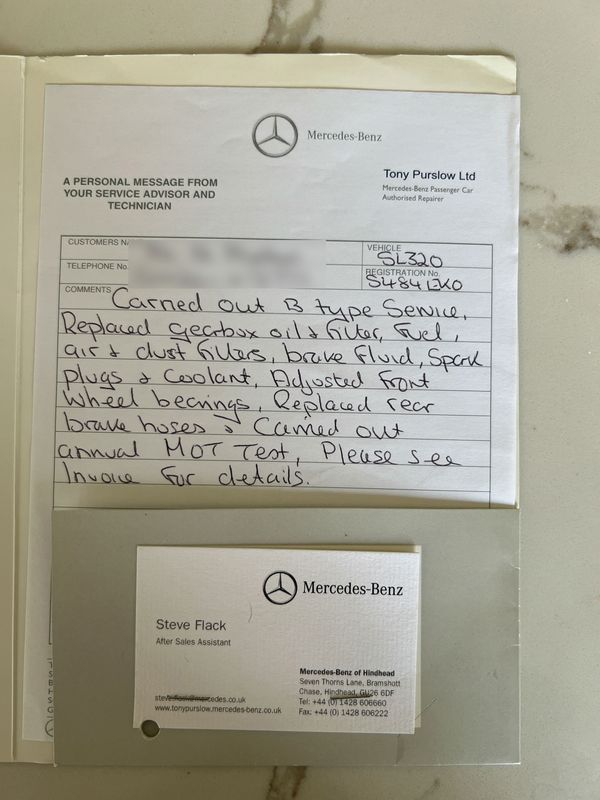 Mercedes-Benz
Tony Purslow Ltd
Mercedes-Benz Passenger Car
Authorised Repairer
A PERSONAL MESSAGE FROM
YOUR SERVICE ADVISOR AND
TECHNICIAN
CUSTOMERS
VEHICLE
SL320
TELEPHONE No.
REGISTRATION No.
S484 EKO
COMMENTS
Carried out B type Service,
Replaced gearbox oil & filter, fuel,
air & dust filters, brake fluid, Spark
plugs & Coolant, Adjusted front
wheel bearings, Replaced rear
brake hoses & Carried out
annual MOT Test, Please see
Invoice for details.
Mercedes-Benz
Steve Flack
After Sales Assistant
Mercedes-Benz of Hindhead
Seven Thorns Lane, Bramshott
Chase, Hindhead, GU26 6DF
Tel: +44 (0) 1428 606660
Fax: +44 (0) 1428 606222
www.tonypurslow.mercedes-benz.co.uk